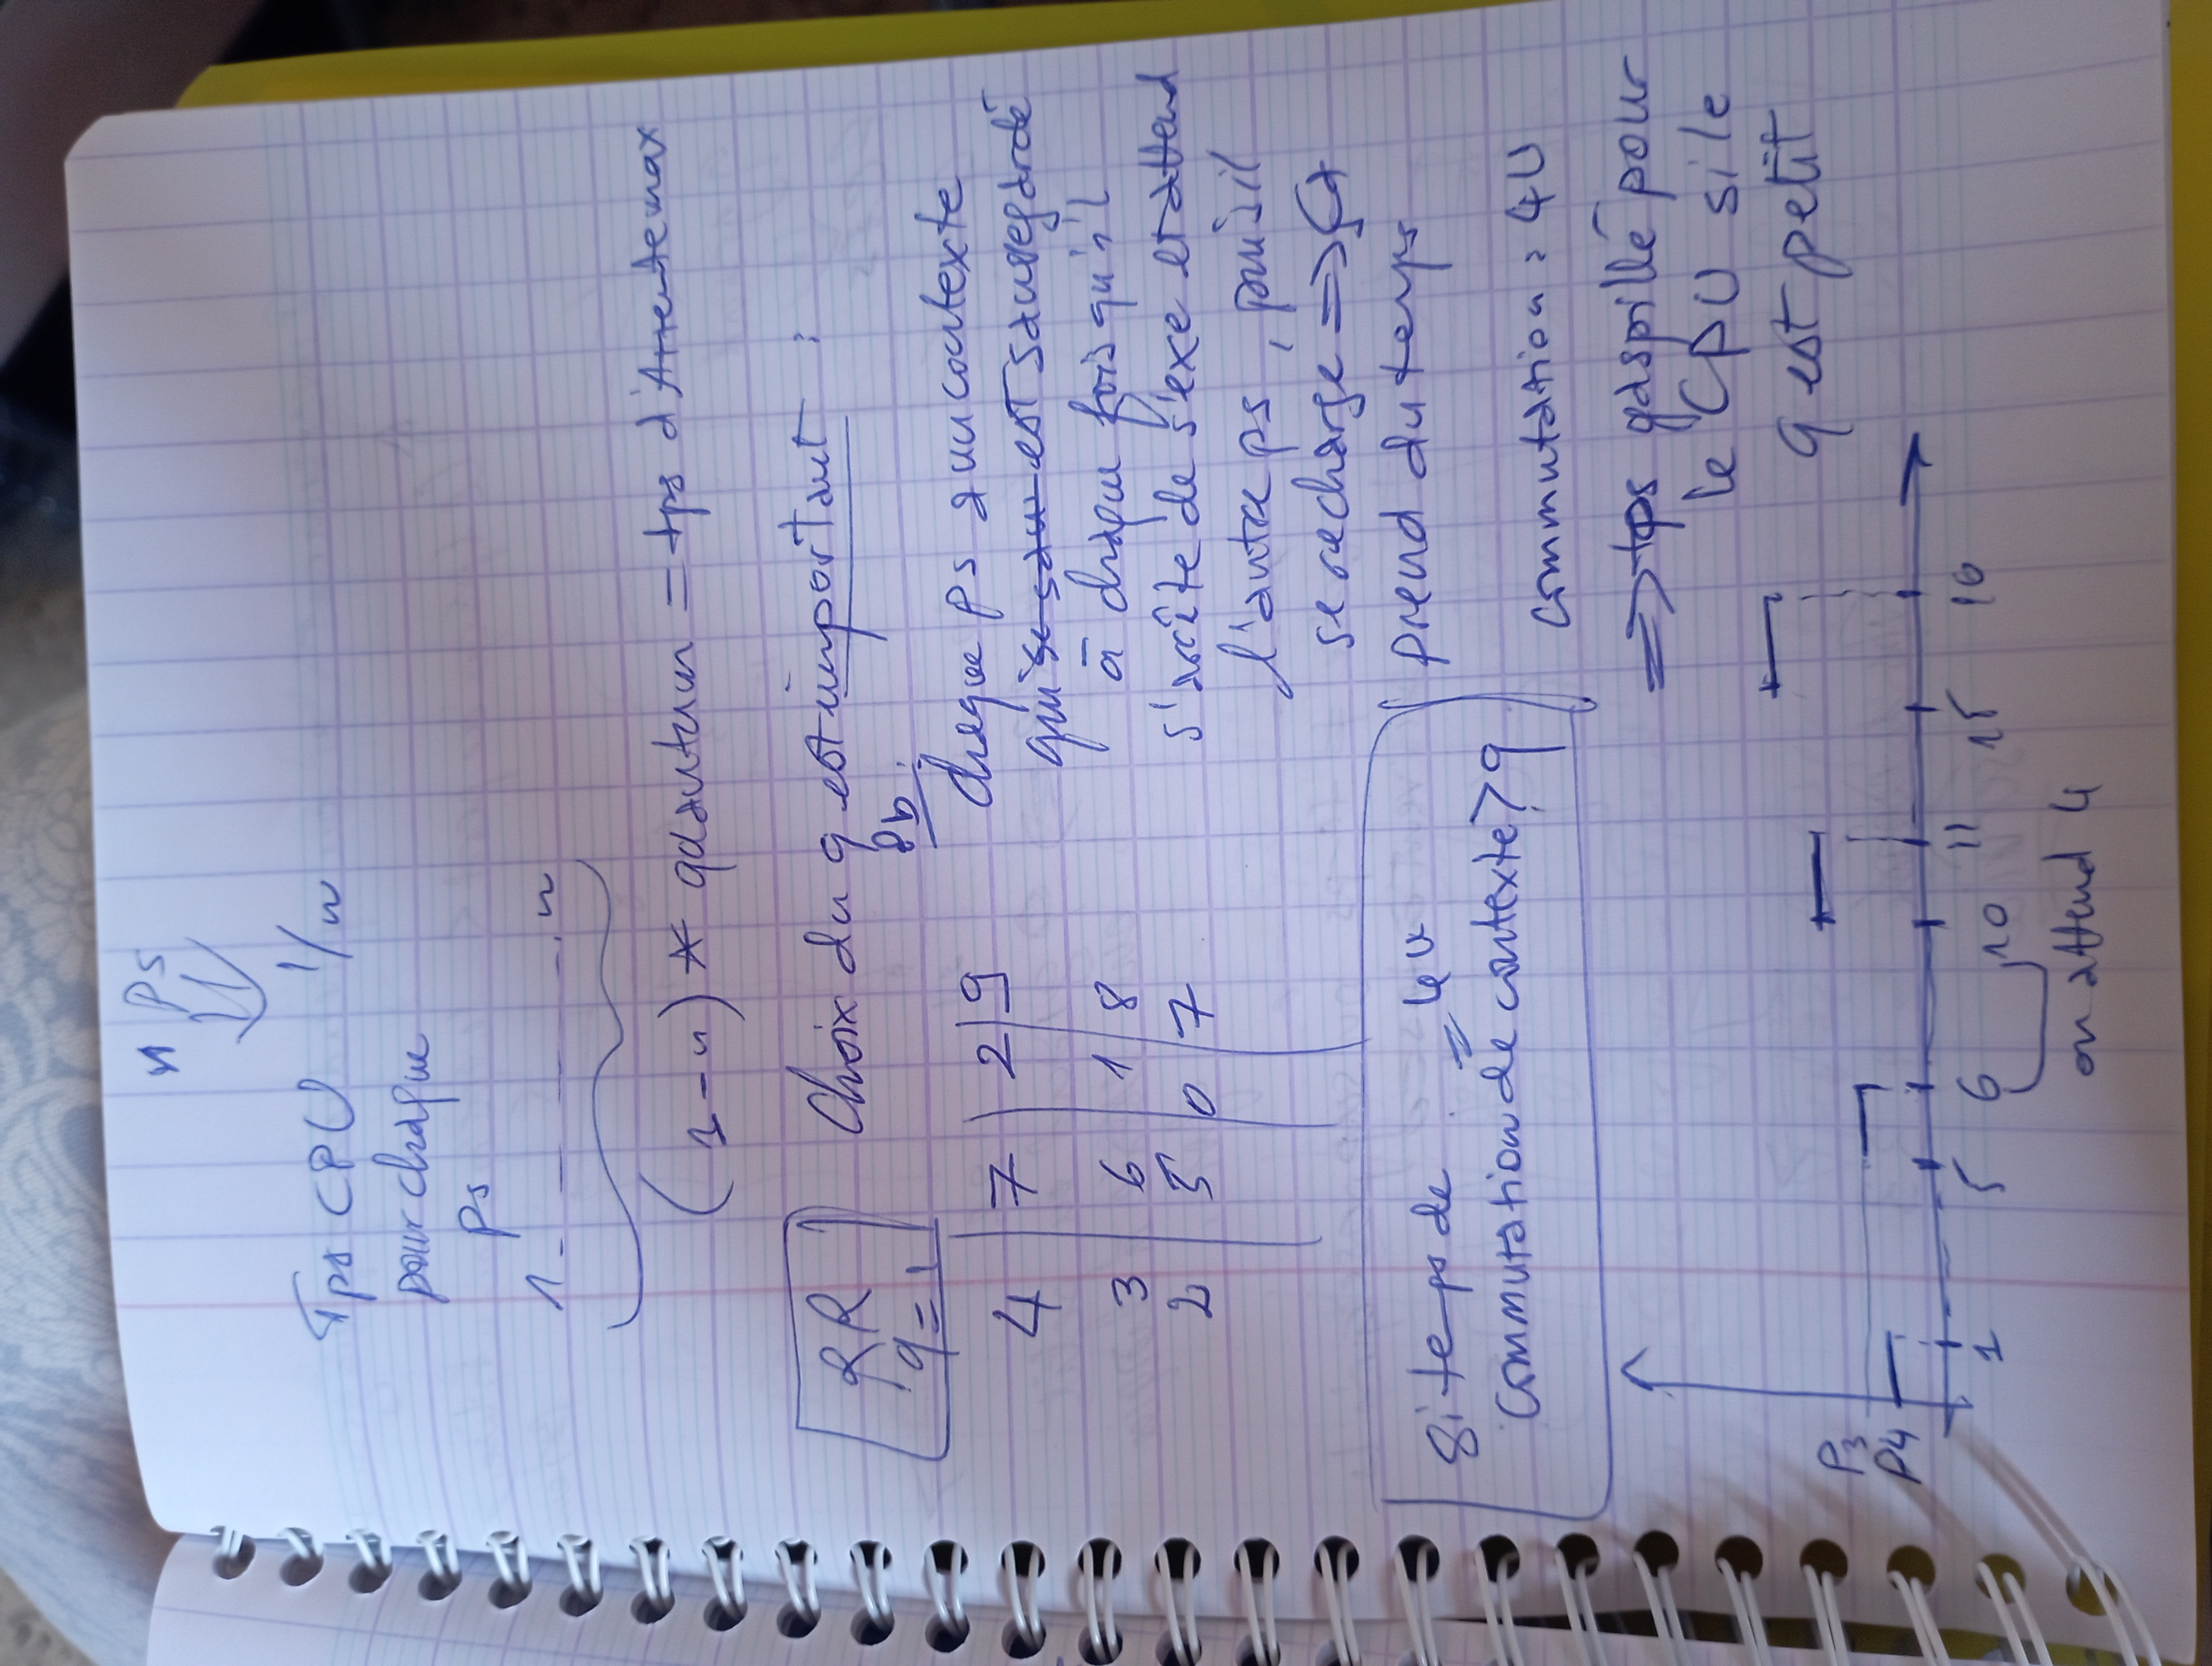 n ps
Tps CPU 1/n
pour chaque
ps
1 - - - - - - . n
(1-n) * quantum = tps d'Attente max
RR
q=1
Choix du q est important :
Pb :
4 | 7 | 2 | 9
3 | 6 | 1 | 8
2 | 5 | 0 | 7
chaque ps a un contexte
qui se sau est sauvegardé
à chaque fois qu'il
s'arrête de s'exe et attend
l'autre ps, puis il
se recharge => ça
prend du temps
Si temps de = 4u
commutation de contexte > q
commutation : 4U
=> tps gaspillé pour
le CPU si le
q est petit
P3
P4
1 5 6 10 11 15 16
on attend 4